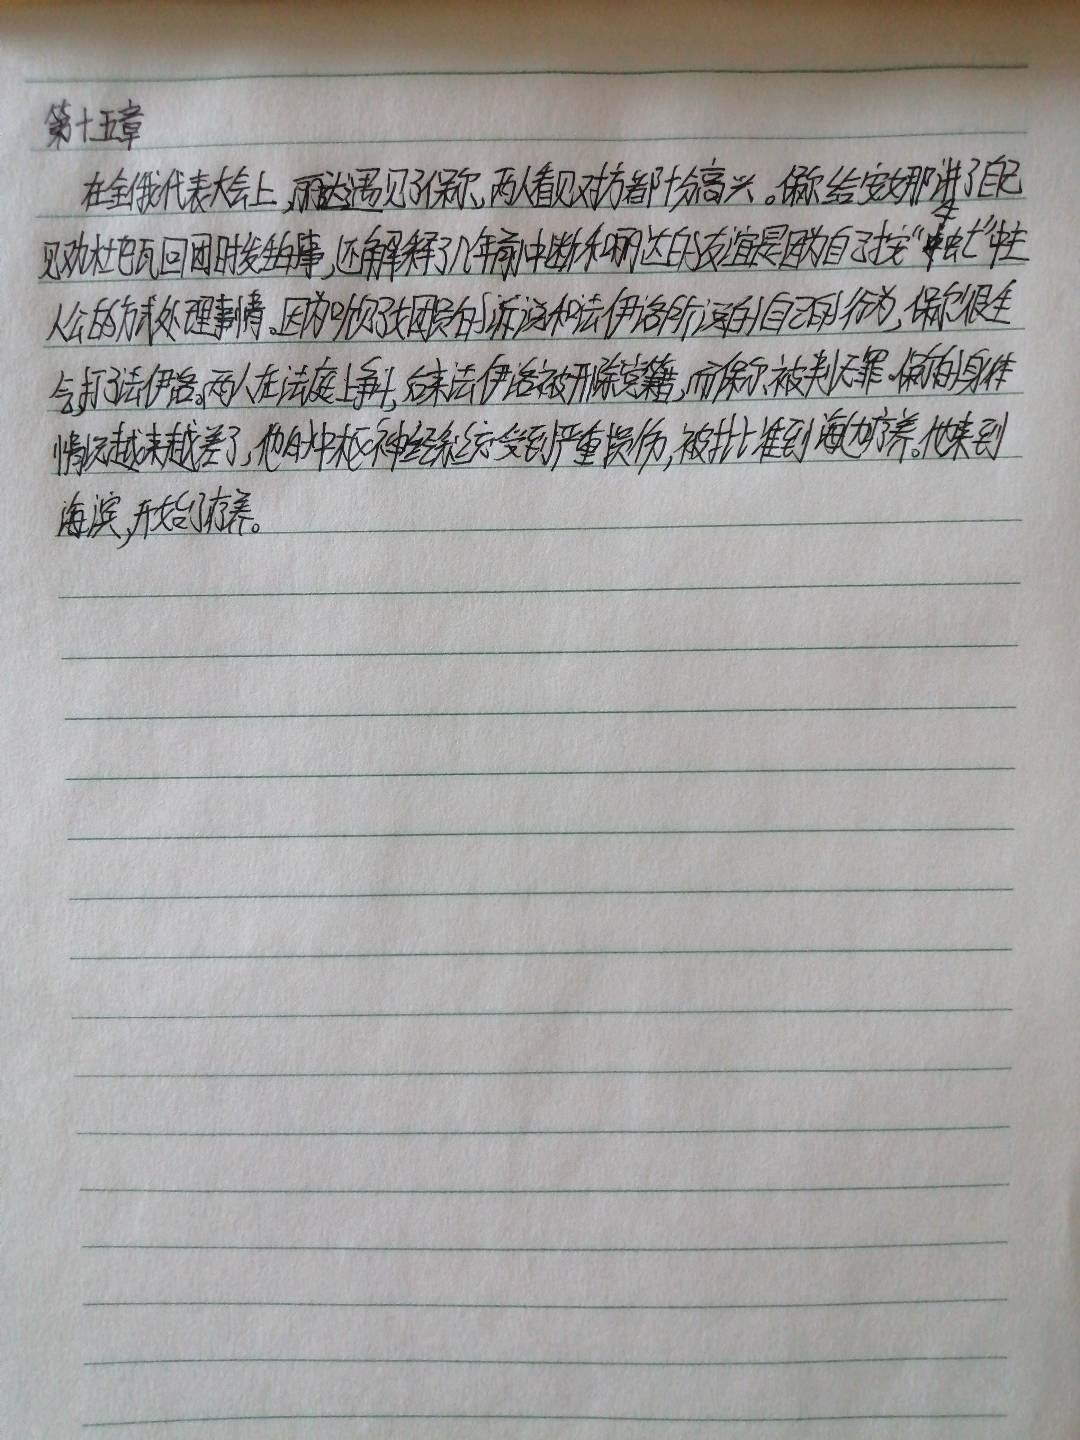 第十五章
在全俄代表大会上,丽达遇见了保尔,两人看见对方都十分高兴。保尔给安娜讲了自己
见劝杜巴瓦回团时发生的事,还解释了几年前中断和丽达的友谊是因为自己按"牛虻"中主
人公的方式处理事情。因为听了女团员的诉说和法伊洛所说的自己的行为,保尔很生
气,打了法伊洛。两人在法庭上争斗,后来法伊洛被开除党籍,而保尔被判无罪。保尔的身体
情况越来越差了,他的中枢神经系统受到严重损伤,被批准到海边疗养。他来到
海滨,开始了疗养。